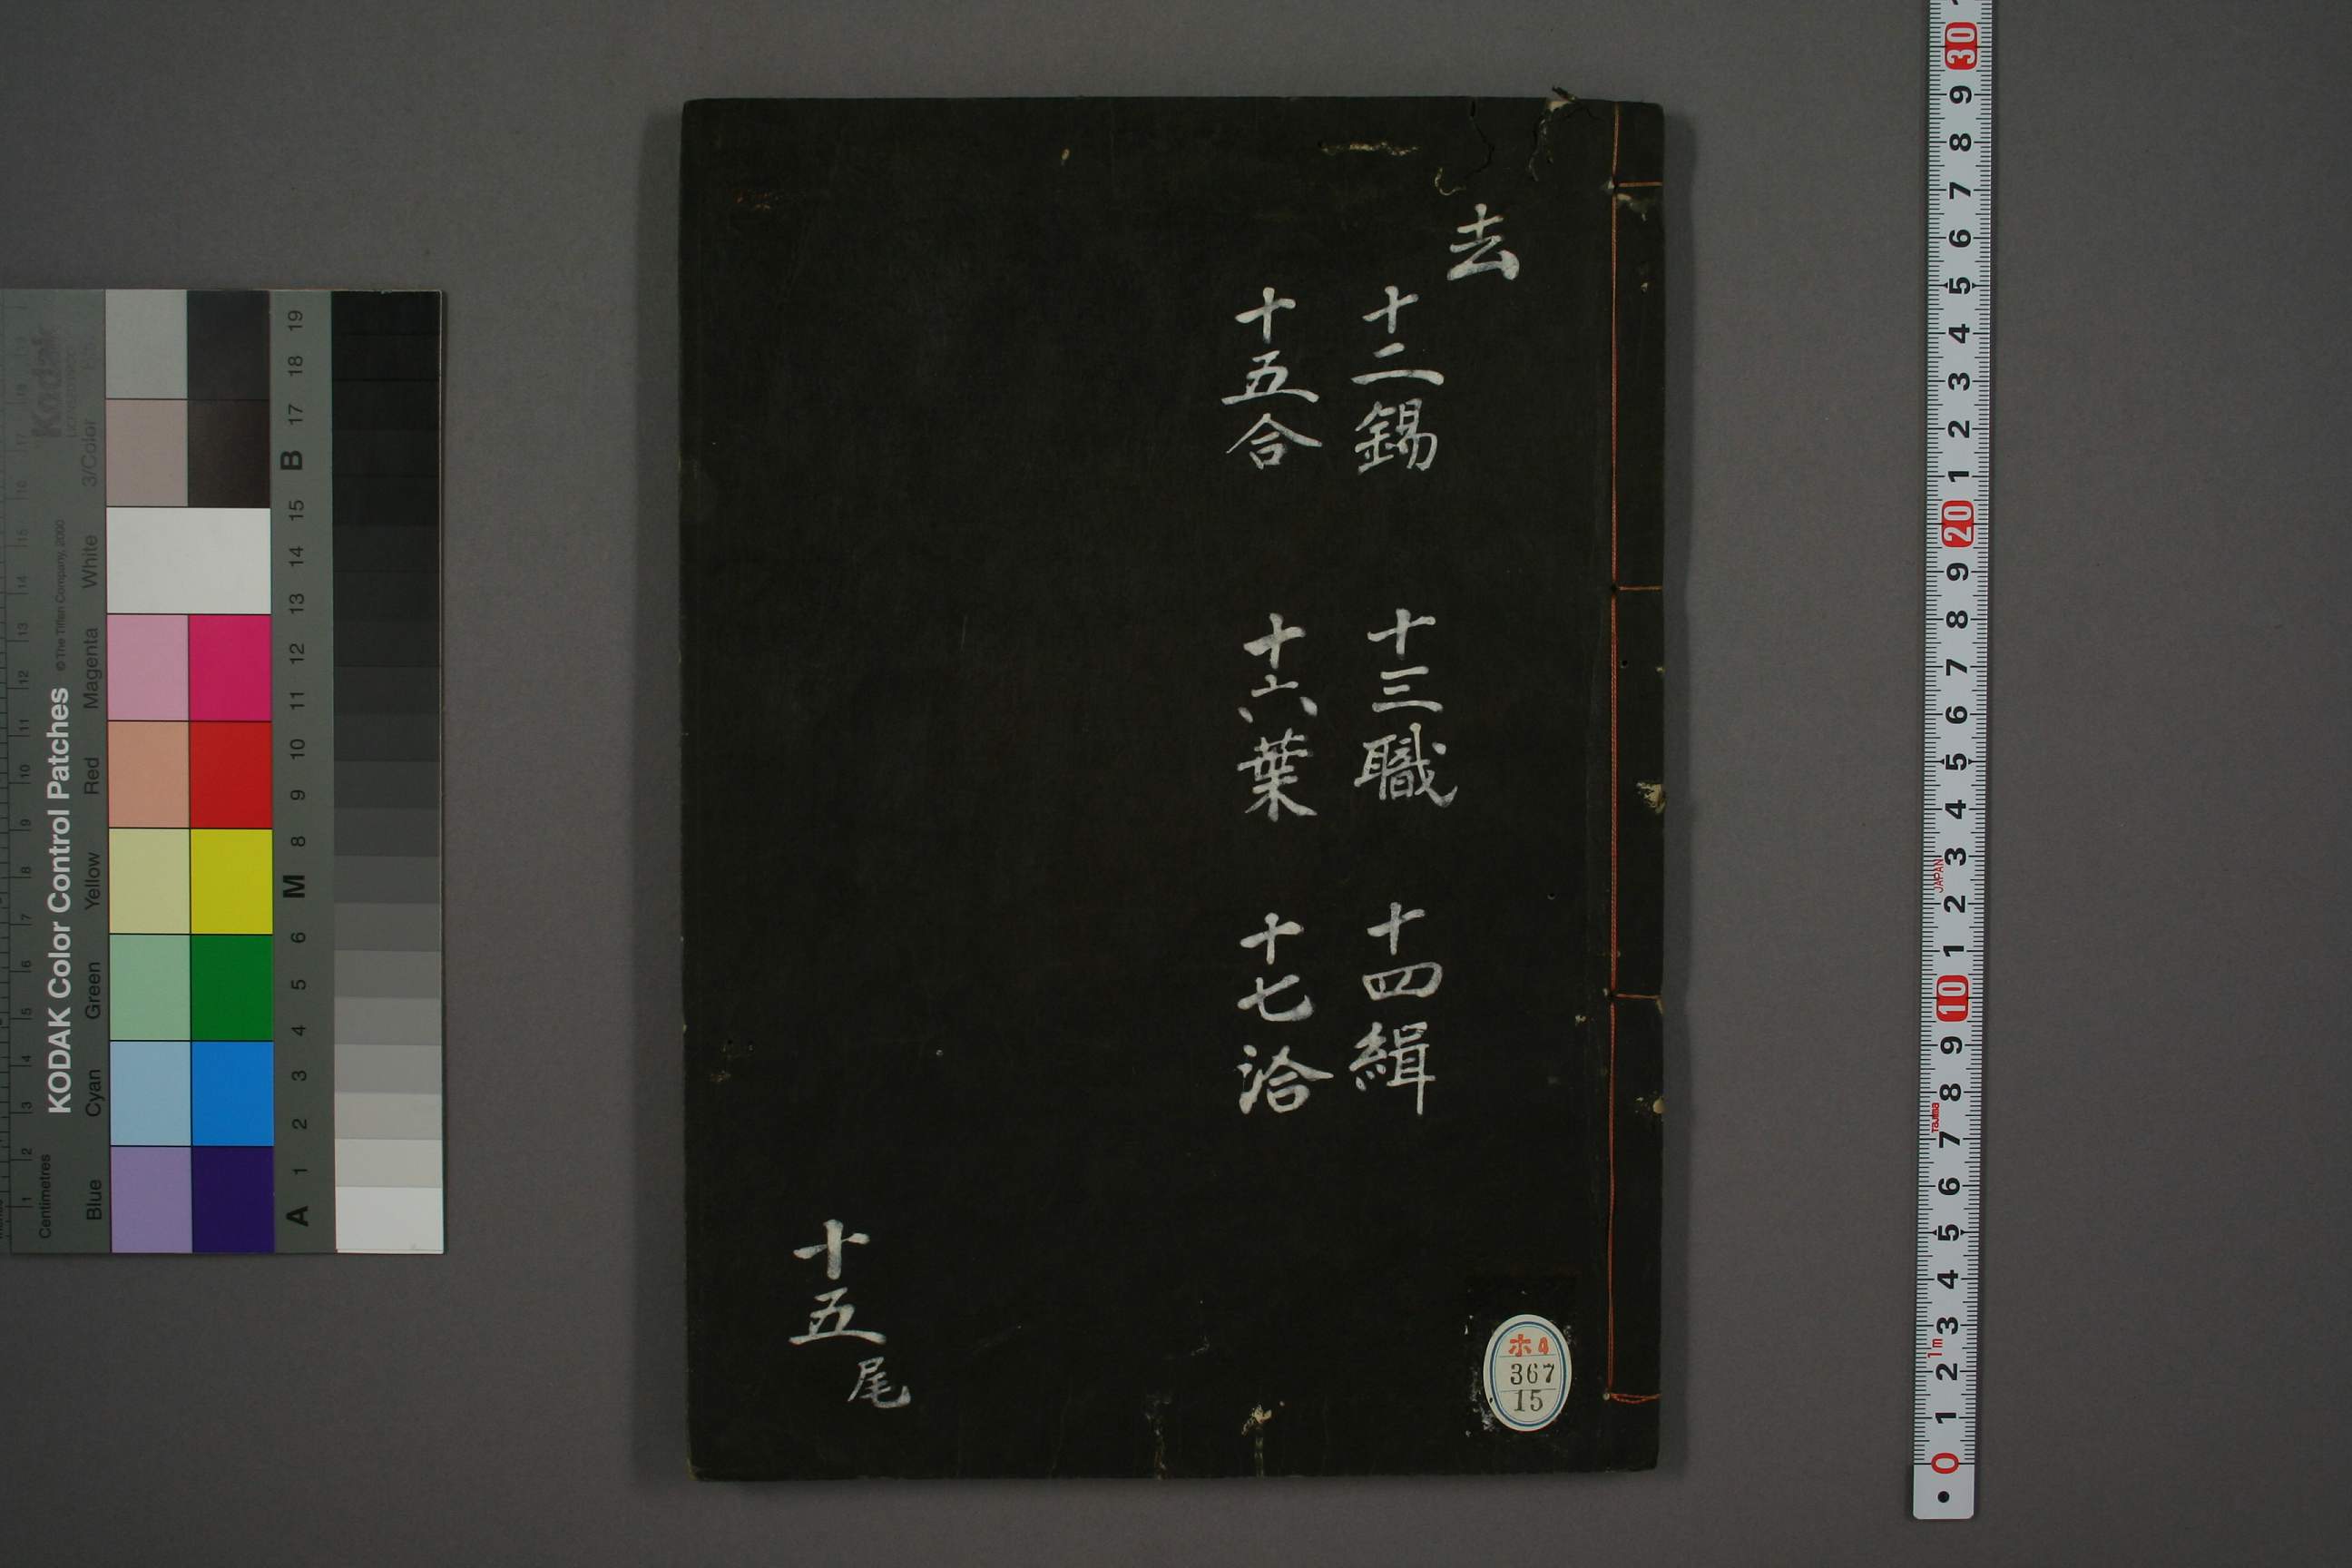 去
十二錫 十三職 十四緝
十五合 十六葉 十七洽
十五尾
ホ4
367
15
KODAK Color Control Patches
© The Tiffen Company, 2000
Kodak
3/Color
Centimetres
Blue Cyan Green Yellow Red Magenta White 3/Color
A 1 2 3 4 5 6 M 8 9 10 11 12 13 14 15 B 17 18 19
30 9 8 7 6 5 4 3 2 1 20 9 8 7 6 5 4 3 2 1 10 9 8 7 6 5 4 3 2 1 0
JAPAN
Tajima
1m